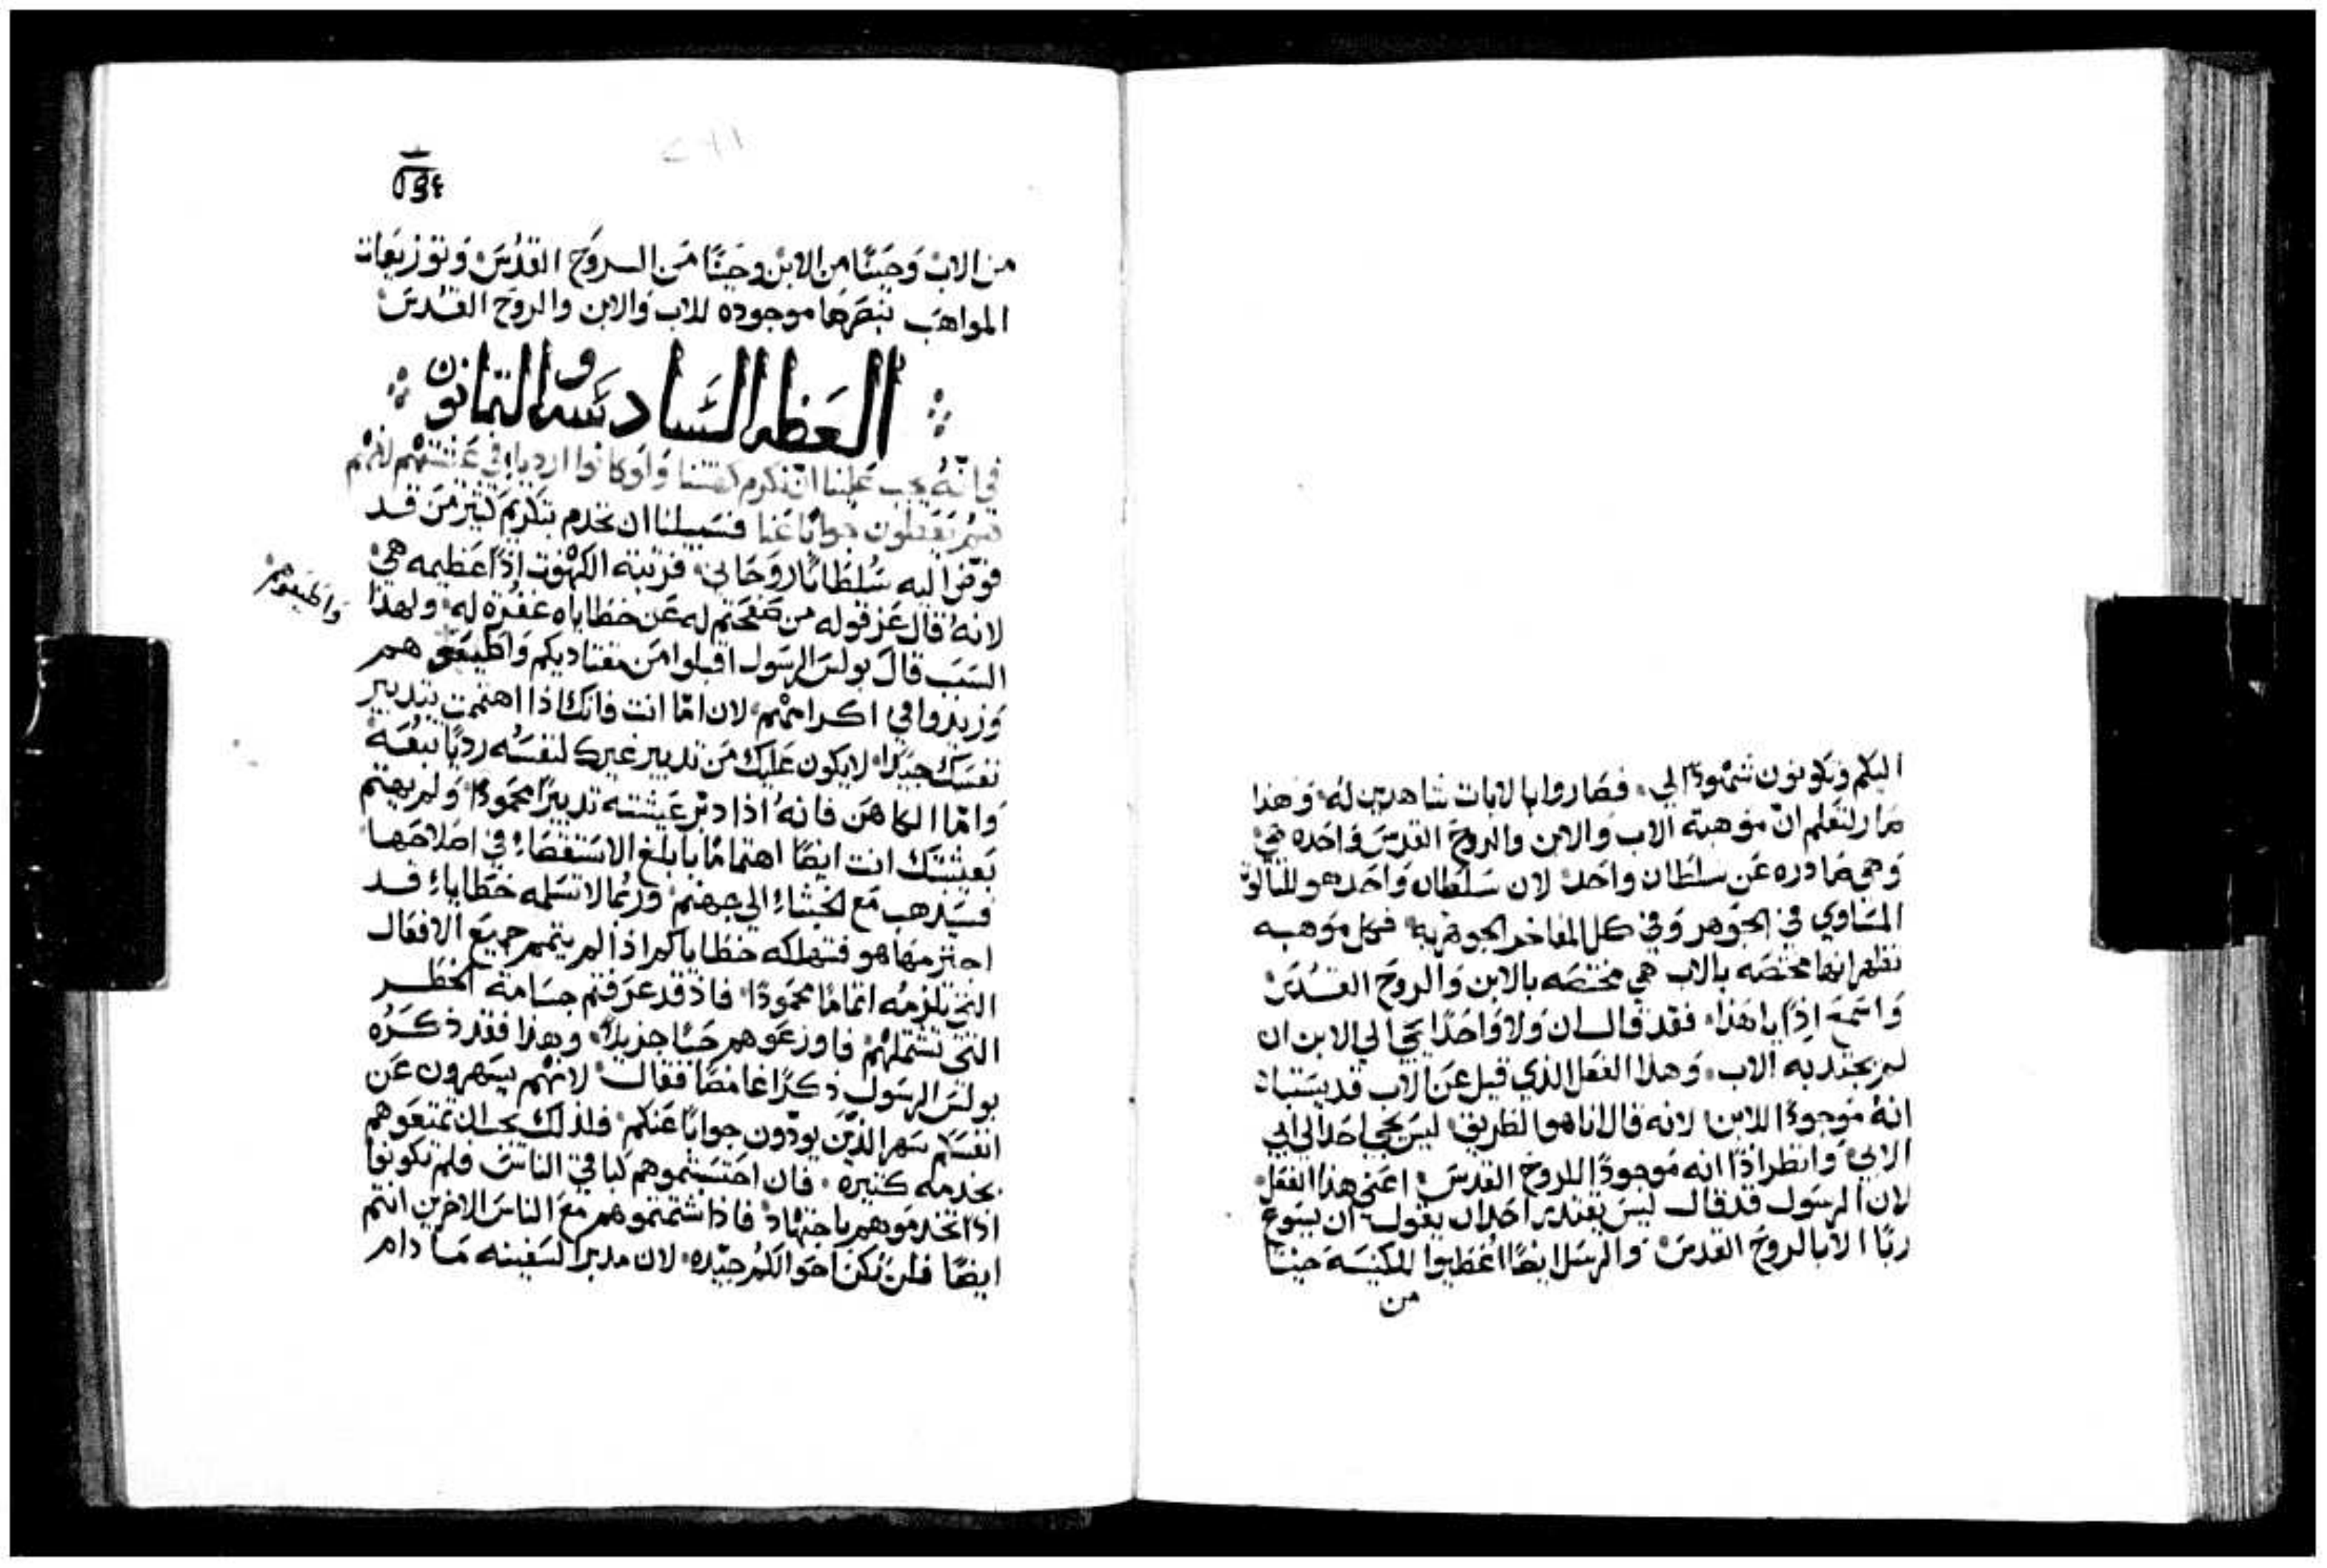 اليكم وتكونون شهودًا لي، فصاروا بالايات شاهدين له، وهذا
صار لتعلم انّ موهبة الاب والابن والروح القدس واحده هي
وهي صادره عن سلطان واحد، لان سلطان واحد هو للثالوث
المساوي في الجوهر وفي كل المفاخر الجوهريه، فكل موهبه
تظهر انها مختصه بالاب هي مختصه بالابن والروح القدس
واسمع اذًا يا هذا، فقد قال ان ولا واحدًا يجي الي الابن ان
لم يجتذبه الاب، وهذا الفعل الذي قيل عن الاب قد يستبان
انه موجودًا للابن، لانه قال انا هو الطريق، ليس يجي احد الي ابي
الا بي، وانظر اذًا انه موجودًا للروح القدس، اعني هذا الفعل،
لان الرسول قد قال ليس يقتدر احد ان يقول ان يسوع
ربًا الا بالروح القدس، والرسل ايضًا اعُطيوا للكنيسة حينًا
من
من الاب، وحينًا من الابن وحينًا من الروح القدس، وتوزيعات
المواهب نبصرها موجوده للاب والابن والروح القدس
العظه السادسه والثمانون
في انّه يجب علينا ان نكرم كهنتنا ولو كانوا اردياء في عيشتهم لانهم
جوابًا عنا فسبيلنا ان نخدم بتكريم كثير من قد
فوّض اليه سُلطانًا روحاني، فرتبة الكهنوت اذًا عظيمه هي
لانه قال عز قوله من صفحتم له عن خطاياه غفرة له، ولهذا
السبب قال بولس الرسول اقبلوا من مقتاديكم واطيعو هم
واطيعوهم
وزيدوا في اكرامهم، لان امّا انت فانك اذا اهتممت بتدبير
نفسك جيّدا، لا يكون عليك من تدبير غيرك لنفسه رديًا تبعة
وامّا الكاهن فانه اذا دبّر عيشته تدبيرًا محمودًا، ولم يهتم
بعيشتك انت ايضًا اهتمامًا بابلغ الاستقصاء في اصلاحها
فسيذهب مع الخبثاء الي جهنم، وربما لا تسلمه خطاياء قد
اجترمها هو فتهلكه خطاياكم اذا لم يتمم جميع الافعال
التي تلزمه اتمامًا محمودًا، فاذ قد عرفتم جسامة الخطر
التي تشتملهم، فاوزعوهم حبًا جزيلاً، وهذا فقد ذكره
بولس الرسول ذكرًا غامضًا فقال، لانهم يسهرون عن
انفسكم سهر الذين يودّون جوابًا عنكم، فلذلك يجب ان تمتعوهم
بخدمه كثيرة، فان احتسبتموهم كباقي الناس فلم تكونوا
اذًا تخدموهم باجتهاد، فاذا شتمتموهم مع الناس الاخرين انتم
ايضًا فلن تكن احوالكم جيّده، لان مدبر السفينه ما دام